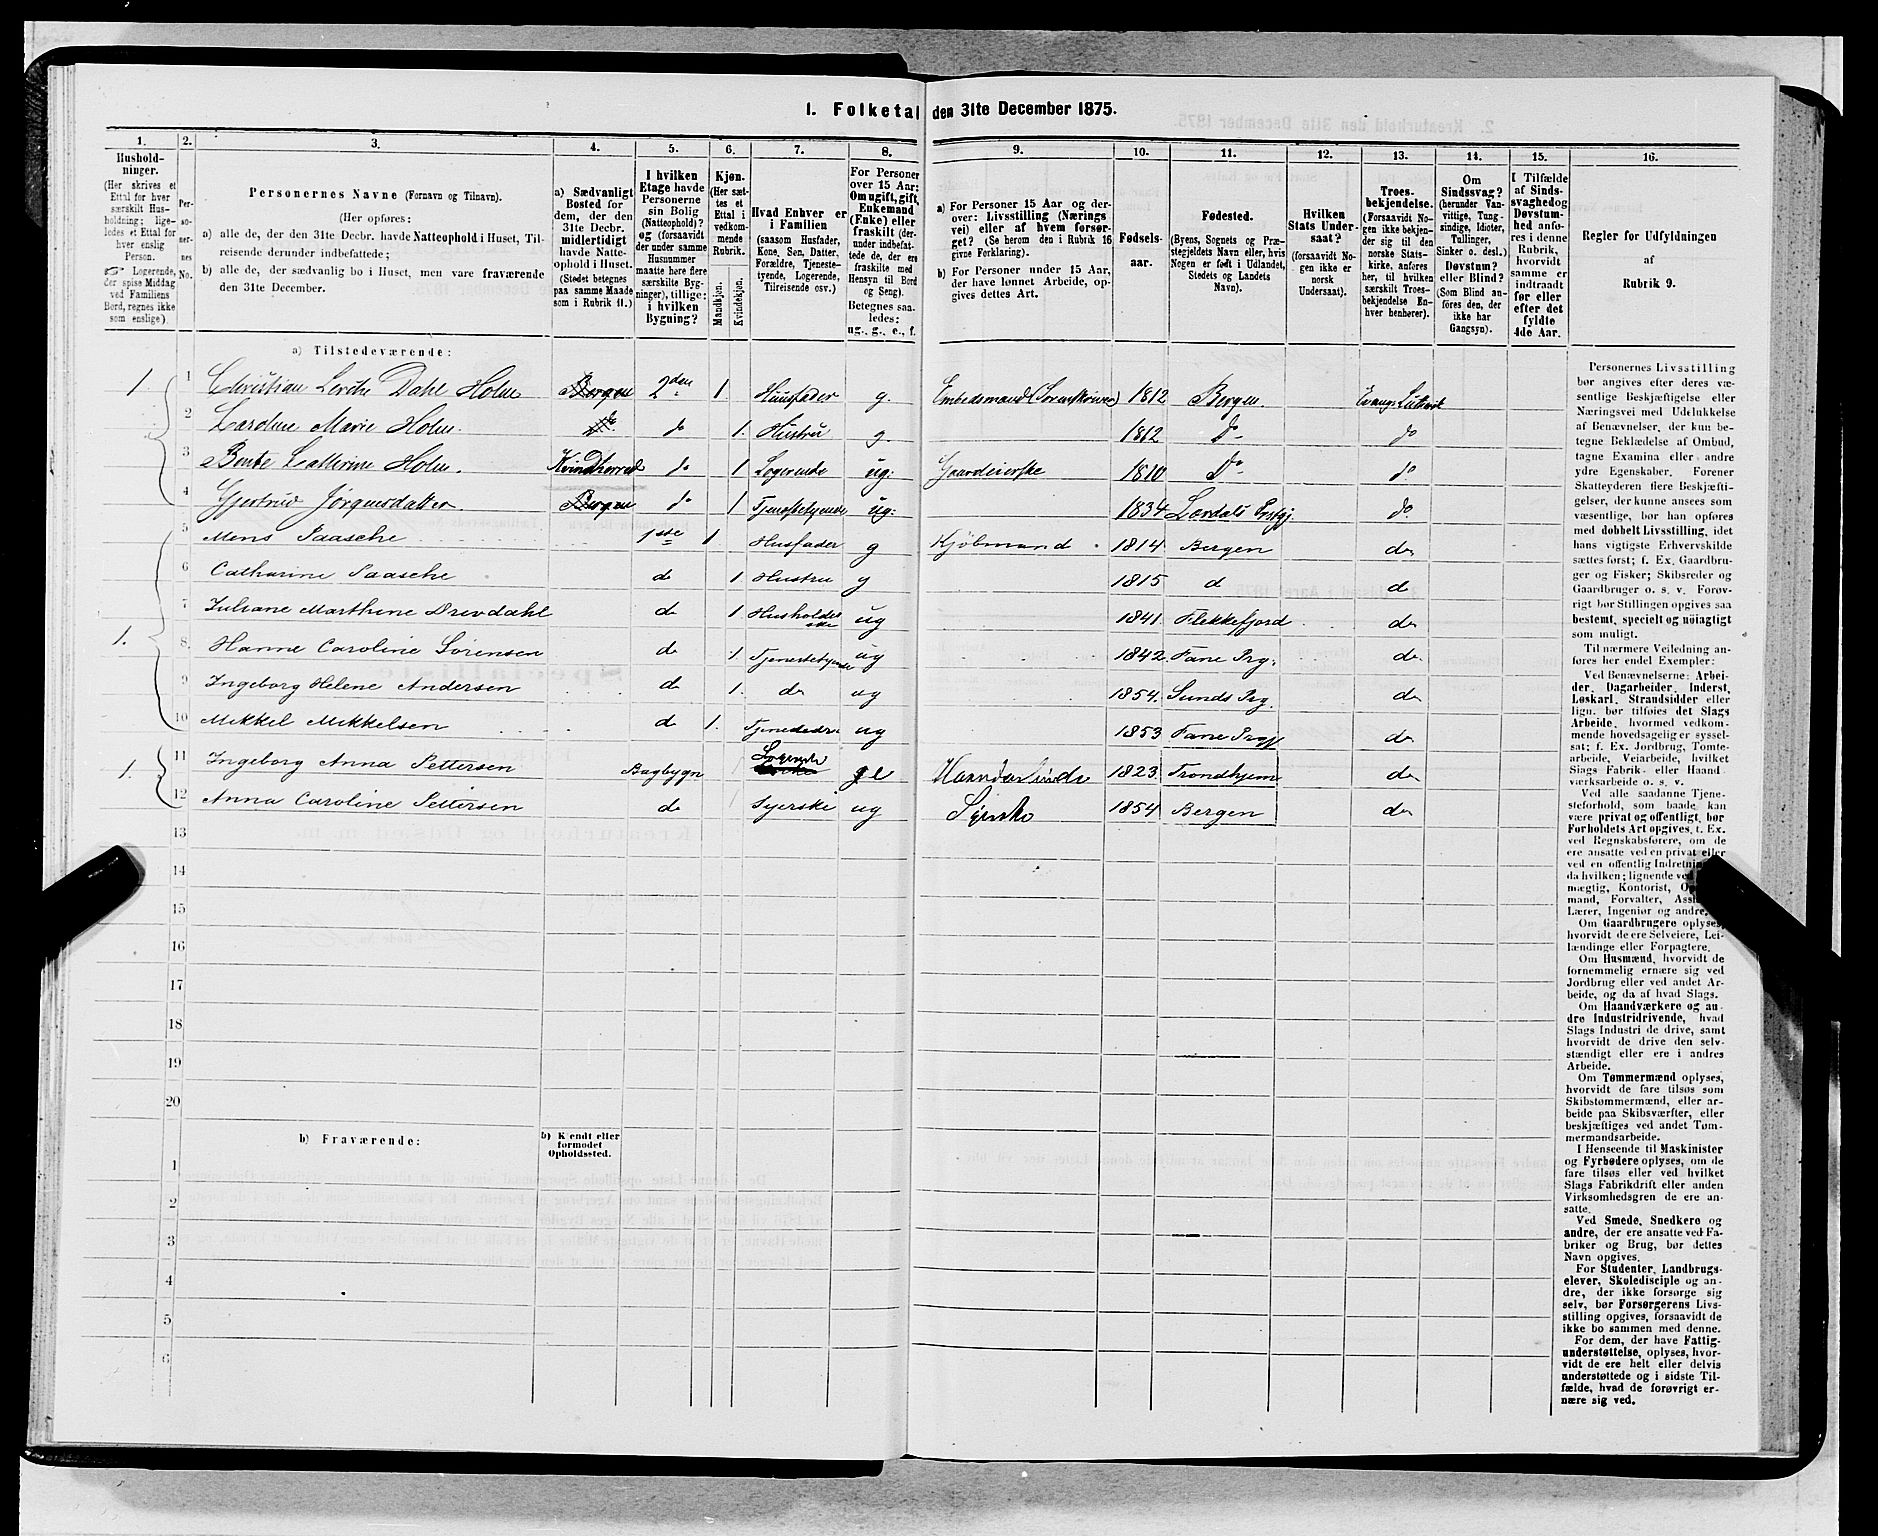 1. Folketal den 31te December 1875.
1. 2. 3. 4. 5. 6. 7. 8. 9. 10. 11. 12. 13. 14. 15. 16.
Hushold-
ninger.
(Her skrives et
Ettal for hver
særskilt Hus-
holdning; lige-
ledes et Ettal for
hver enslig
Person.
☞ Logerende,
der spise Middag
ved Familiens
Bord, regnes ikke
som enslige.)
Per-
so-
ner-
nes
No.
Personernes Navne (Fornavn og Tilnavn).
(Her opføres:
a) alle de, der den 31te Decbr. havde Natteophold i Huset, Til-
reisende derunder indbefattede;
b) alle de, der sædvanlig bo i Huset, men vare fraværende
den 31te December.
a) Sædvanligt
Bosted for
dem, der den
31te Decbr.
midlertidigt
havde Natte-
ophold i Huset.
(Stedet betegnes
paa samme Maade
som i Rubrik 11.)
I hvilken
Etage havde
Personerne
sin Bolig
(Natteophold)?
og (forsaavidt
der under samme
Husnummer
maatte høre flere
særskilte Byg-
ninger), tillige:
i hvilken
Bygning?
Kjøn.
(Her sæt-
tes et
Ettal i
vedkom-
mende
Rubrik.
Mandkjøn.
Kvindekjøn.
Hvad Enhver er
i Familien
(saasom Husfader,
Kone, Søn, Datter,
Forældre, Tjeneste-
tyende, Logerende,
Tilreisende osv.)
For Personer
over 15 Aar:
Om ugift, gift,
Enkemand
(Enke) eller
fraskilt (der-
under indbefat-
tede de, der ere
fraskilte med
Hensyn til Bord
og Seng).
Betegnes saa-
ledes:
ug., g., e., f.
a) For Personer 15 Aar og der-
over: Livsstilling (Nærings
vei) eller af hvem forsør-
get? (Se herom den i Rubrik 16
givne Forklaring).
b) For Personer under 15 Aar,
der have lønnet Arbeide, op-
gives dettes Art.
Fødsels-
aar.
Fødested.
(Byens, Sognets og Præ-
stegjeldets Navn eller, hvis
Nogen er født i Udlandet,
Stedets og Landets
Navn).
Hvilken
Stats Under-
saat?
(forsaavidt No-
gen ikke er
norsk
Undersaat).
Troes-
bekjendelse.
(Forsaavidt No-
gen ikke bekjen-
der sig til den
norske Stats-
kirke, anføres
her, til hvilken
særskilt Troes-
bekjendelse En-
hver henhører).
Om
Sindssvag?
(herunder Van-
vittige, Tung-
sindige, Idioter,
Tullinger,
Sinker o. desl.)
Døvstum?
eller Blind?
(Som Blind an-
føres den, der
ikke har
Gangsyn).
I Tilfælde
af Sinds-
svaghed og
Døvstum-
hed anfø-
res i denne
Rubrik,
hvorvidt
samme er
indtraadt
før eller
efter det
fyldte
4de Aar.
Regler for Udfyldningen
af
Rubrik 9.
a) Tilstedeværende:
1 1 Christian Lerche Dahl Holm Bergen 2den 1. Huusfader g. Embedsmand (Sorenskriver) 1812 Bergen. Evang. Luthersk
2 Caroline Marie Holm. do do 1. Hustru g. 1812 Do do
3 Bente Cathrine Holm. Kvindherred do 1 Logerende ug: Gaardeierske 1810 Do do
4 Gjertrud Jørgensdatter Bergen do 1 Tjenestetyende ug: 1834 Lærdals Prstgj. do
5 Mons Paasche 1ste 1 Husfader g Kjøbmand 1814 Bergen do
6 Catharine Paasche d 1. Hustru g 1815 d d
7 Juliane Marthine Drevdahl d 1. Husholderske ug 1841. Flekkefjord do
1. 8. Hanne Caroline Sørensen d 1. Tjenestetyende ug 1842. Fane Prg. do
9 Ingeborg Helene Andersen d 1. do ug 1854. Sunds Prg. do
10 Mikkel Mikkelsen d 1. Tjenededr. ug 1853 Fane Prgj do
1. 11 Ingeborg Anna Pettersen Bagbygn Logerende e 1823. Trondhjem do
12 Anna Caroline Pettersen d Syerske ug Syerske 1854 Bergen do
13
14
15
16
17
18
19
20
b) Fraværende:
b) Kendt eller
formodet
Opholdssted.
1
2
3
4
5
6
Personernes Livsstilling
bør angives efter deres væ-
sentlige Beskjæftigelse eller
Næringsvei med Udelukkelse
af Benævnelser, der kun be-
tegne Beklædelse af Ombud,
tagne Examina eller andre
ydre Egenskaber. Forener
Skatteyderen flere Beskjæfti-
gelser, der kunne ansees som
væsentlige, bør han opføres
med dobbelt Livsstilling, idet
hans vigtigste Erhvervskilde
sættes først; f. Ex. Gaardbru-
ger og Fisker; Skibsreder og
Gaardbruger o. s. v. Forøv-
rigt bør Stillingen opgives saa
bestemt, specielt og nöiagtigt
som muligt.
Til nærmere Veiledning an-
føres her endel Exempler:
Ved Benævnelserne: Arbei-
der, Dagarbeider, Inderst,
Løskarl, Strandsidder eller
lign. bør tilføies det Slags
Arbeide, hvormed vedkom-
mende hovedsagelig er syssel-
sat; f. Ex. Jordbrug, Tømte-
arbeide, Veiarbeide, hvilket
Slags Fabrik- eller Haand
værksarbeide o. s. v.
Ved alle saadanne Tjene-
steforhold, som baade kan
være privat og offentligt, bør
Forholdets Art opgives, t. Ex.
ved Regnskabsførere, om de
ere ansatte ved en privat eller
ved en offentlig Indretning
da hvilken; lignende ved
mægtig, Kontorist,
mand, Forvalter,
Lærer, Ingeniør og andre.
Om Gaardbrugere oplyses,
hvorvidt de ere Selveiere, Lei-
lændinge eller Forpagtere.
Om Husmænd, hvorvidt de
fornemmelig ernære sig ved
Jordbrug eller ved andet Ar-
beide, og da af hvad Slags.
Om Haandværkere og an-
dre Industridrivende, hvad
Slags Industri de drive, samt
hvorvidt de drive den selv-
stændigt eller ere i andres
Arbeide.
Om Tømmermænd oplyses,
hvorvidt de fare tilsøs som
Skibstømmermænd, eller ar-
beide paa Skibsværfter, eller
beskjæftiges ved andet Tøm-
mermandsarbeide.
I Henseende til Maskinister
og Fyrbødere oplyses, om de
fare tilsøs eller ved hvilket
Slags Fabrikdrift eller anden
Virksomhedsgren de ere an-
satte.
Ved Smede, Snedkere og
andre, der ere ansatte ved Fa-
briker og Brug, bør dettes
Navn opgives.
For Studenter, Landbrugs-
elever, Skoledisciple og an-
dre, der ikke forsørge sig
selv, bør Forsørgerens Livs-
stilling opgives, forsaavidt de
ikke bo sammen med denne.
For dem, der have Fattig-
understøttelse, oplyses, hvor-
vidt de ere helt eller delvis
understøttede og i sidste Til-
fælde, hvad de forøvrigt er-
nære sig ved.